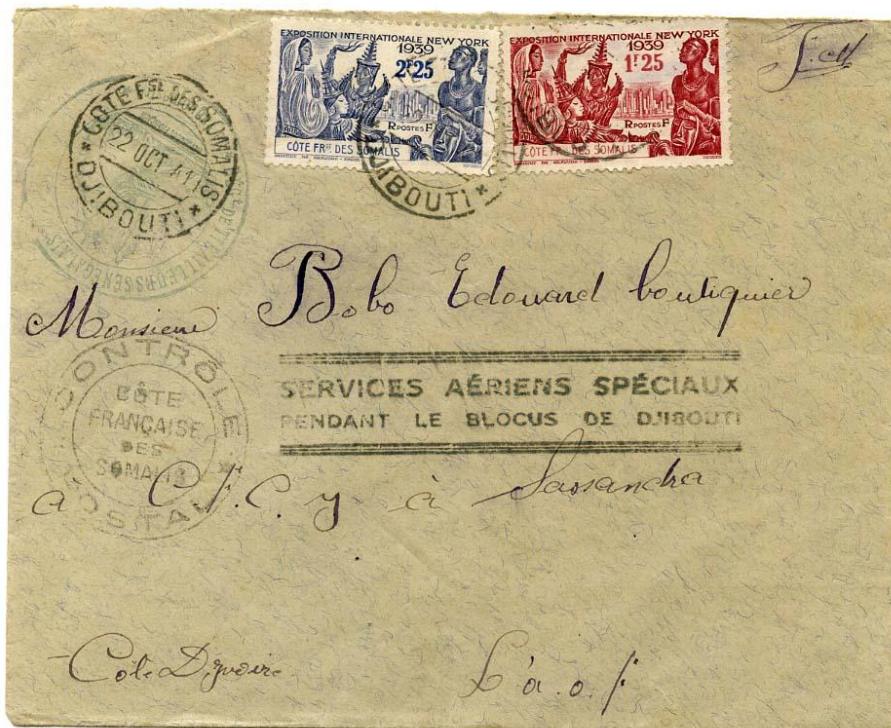 EXPOSITION INTERNATIONALE NEW YORK
1939
2F25
RF POSTES
CÔTE FRSE DES SOMALIS
EXPOSITION INTERNATIONALE NEW YORK
1939
1F25
RF POSTES
CÔTE FRSE DES SOMALIS
* CÔTE FSE DES SOMALIS *
22 OCT 41
DJIBOUTI
DJIBOUTI *
TIRAILLEURS SÉNÉGALAIS
Monsieur Bobo Edouard boutiquier
CONTRÔLE * POSTAL
CÔTE
FRANÇAISE
DES
SOMALIS
SERVICES AÉRIENS SPÉCIAUX
PENDANT LE BLOCUS DE DJIBOUTI
à C.F.C.y à Sassandra
Côte D'yvoire
L'a.o.f.